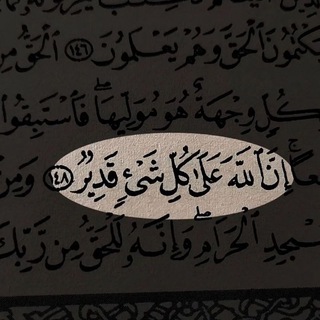 يَكْتُمُونَ ٱلْحَقَّ وَهُمْ يَعْلَمُونَ ١٤٦ ٱلْحَقُّ مِن
وَلِكُلٍّ وِجْهَةٌ هُوَ مُوَلِّيهَا فَٱسْتَبِقُوا
إِنَّ ٱللَّهَ عَلَىٰ كُلِّ شَىْءٍ قَدِيرٌ ١٤٨ وَمِنْ
ٱلْحَرَامِ وَإِنَّهُۥ لَلْحَقُّ مِن رَّبِّكَ